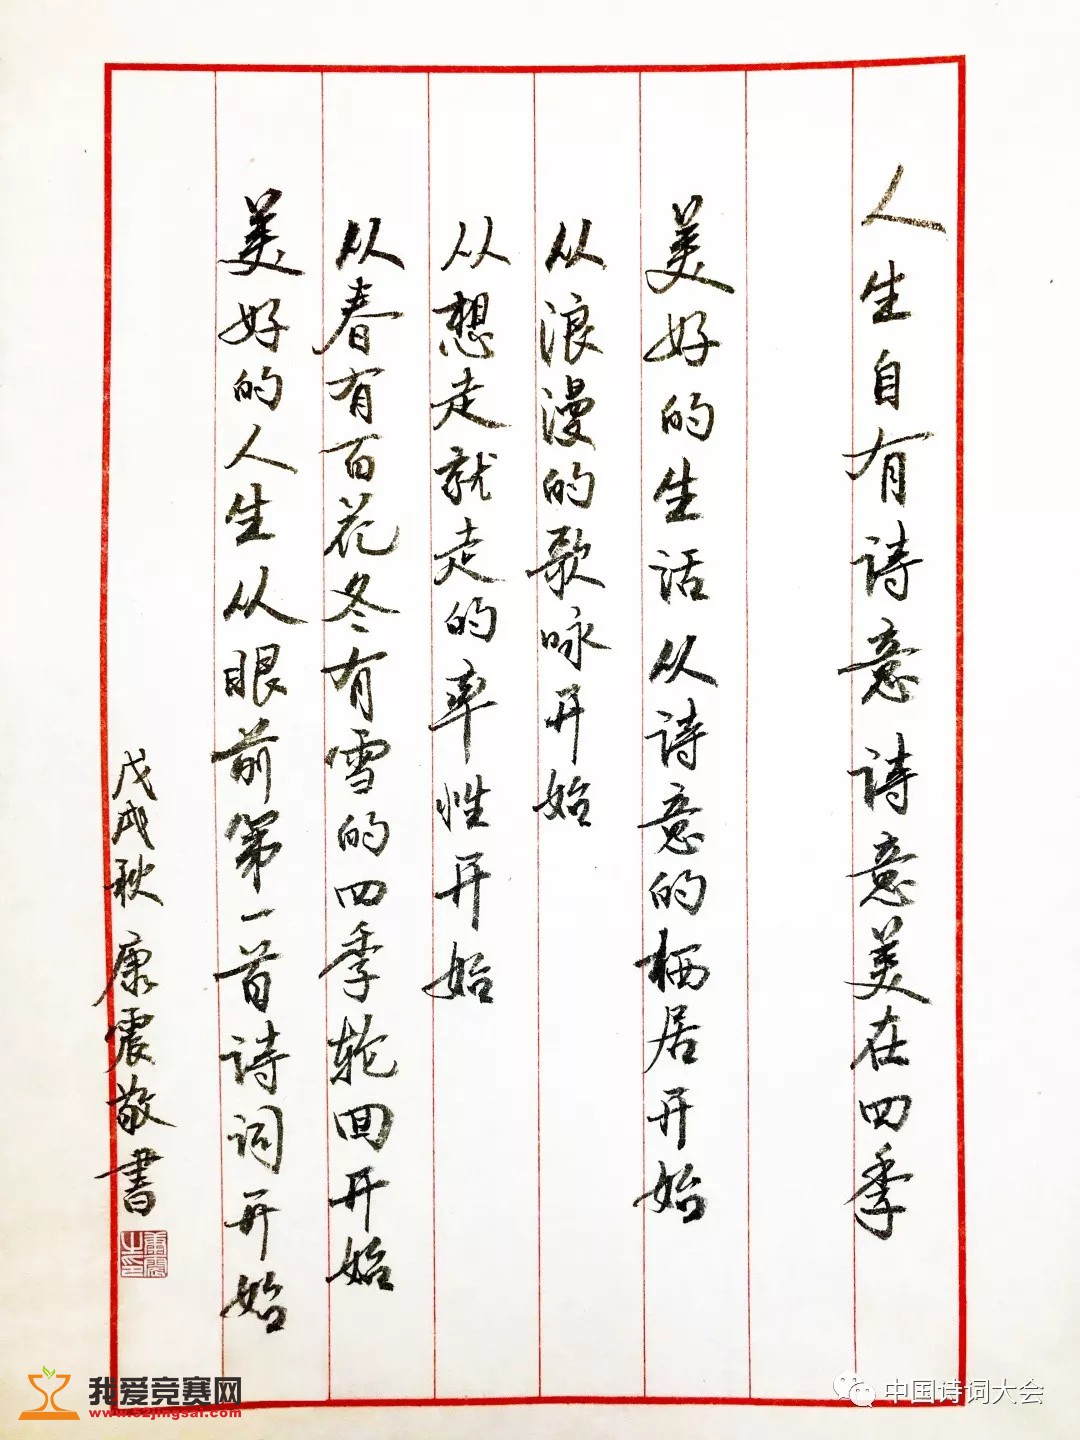 人生自有诗意 诗意美在四季
美好的生活从诗意的栖居开始
从浪漫的歌咏开始
从想走就走的率性开始
从春有百花冬有雪的四季轮回开始
美好的人生从眼前第一首诗词开始
戊戌秋 康震敬書
康震之印
我爱竞赛网
www.52jingsai.com
中国诗词大会